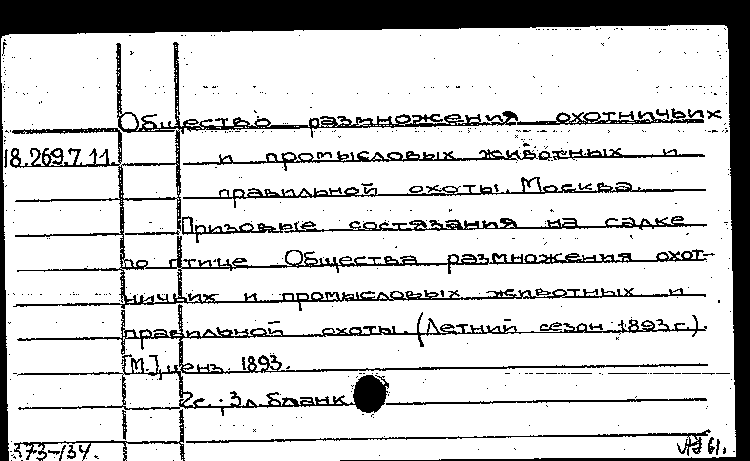 Общество размножения охотничьих
18.269.7.11. и промысловых животных и
правильной охоты. Москва.
Призовые состязания на садке
по птице Общества размножения охот-
ничьих и промысловых животных и
правильной охоты. (Летний сезон 1893 г.).
[М.], ценз. 1893.
2с.; 3л. бланк.
373-134.
61.